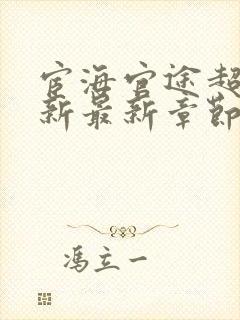 宦海官途超
新最新章节
冯立一